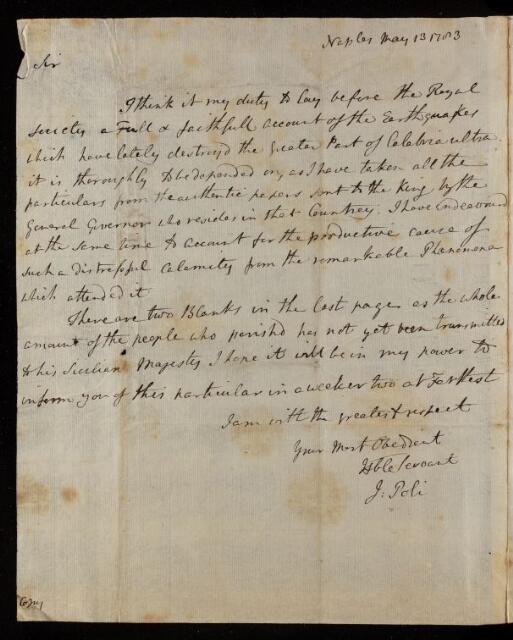 Naples May 13 1783
Sir
I think it my duty to lay before the Royal
Society a Full & faithfull account of the Earthquakes
which have lately destroyd the Greater Part of Calabria ultra.
it is thoroughly to be depended on, as I have taken all the
particulars from the authentic papers sent to the King by the
General Governor who resides in that Country. I have Endeavourd
at the same time to account for the productive cause of
such a distressful calamity from the remarkable Phenomena
which attended it
There are two Blanks in the last page as the whole
amount of the people who perishd has not yet been transmitted
to his Sicilian Majesty I hope it will be in my power to
inform you of this particular in a week or two at Farthest
I am with the greatest respect
Your Most Obedient
Hble Servant
J: Poli
Copy